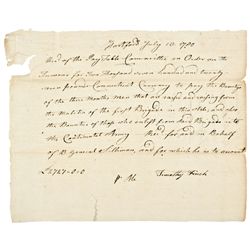 Hartford July 10 1780
Rec'd of the Pay Table Committee an Order on the
Treasurer for Two Thousand seven hundred and twenty
seven pounds Connecticut Currency to pay the Bounty
of the three Months Men that are raised and raising from
the Militia of the first Brigade in this State, and also
the Bounties of those who enlist from said Brigade into
the Continental Army Rec'd for and in Behalf
of B General Silliman, and for which he is to account
£2727-0-0
Timothy Finch